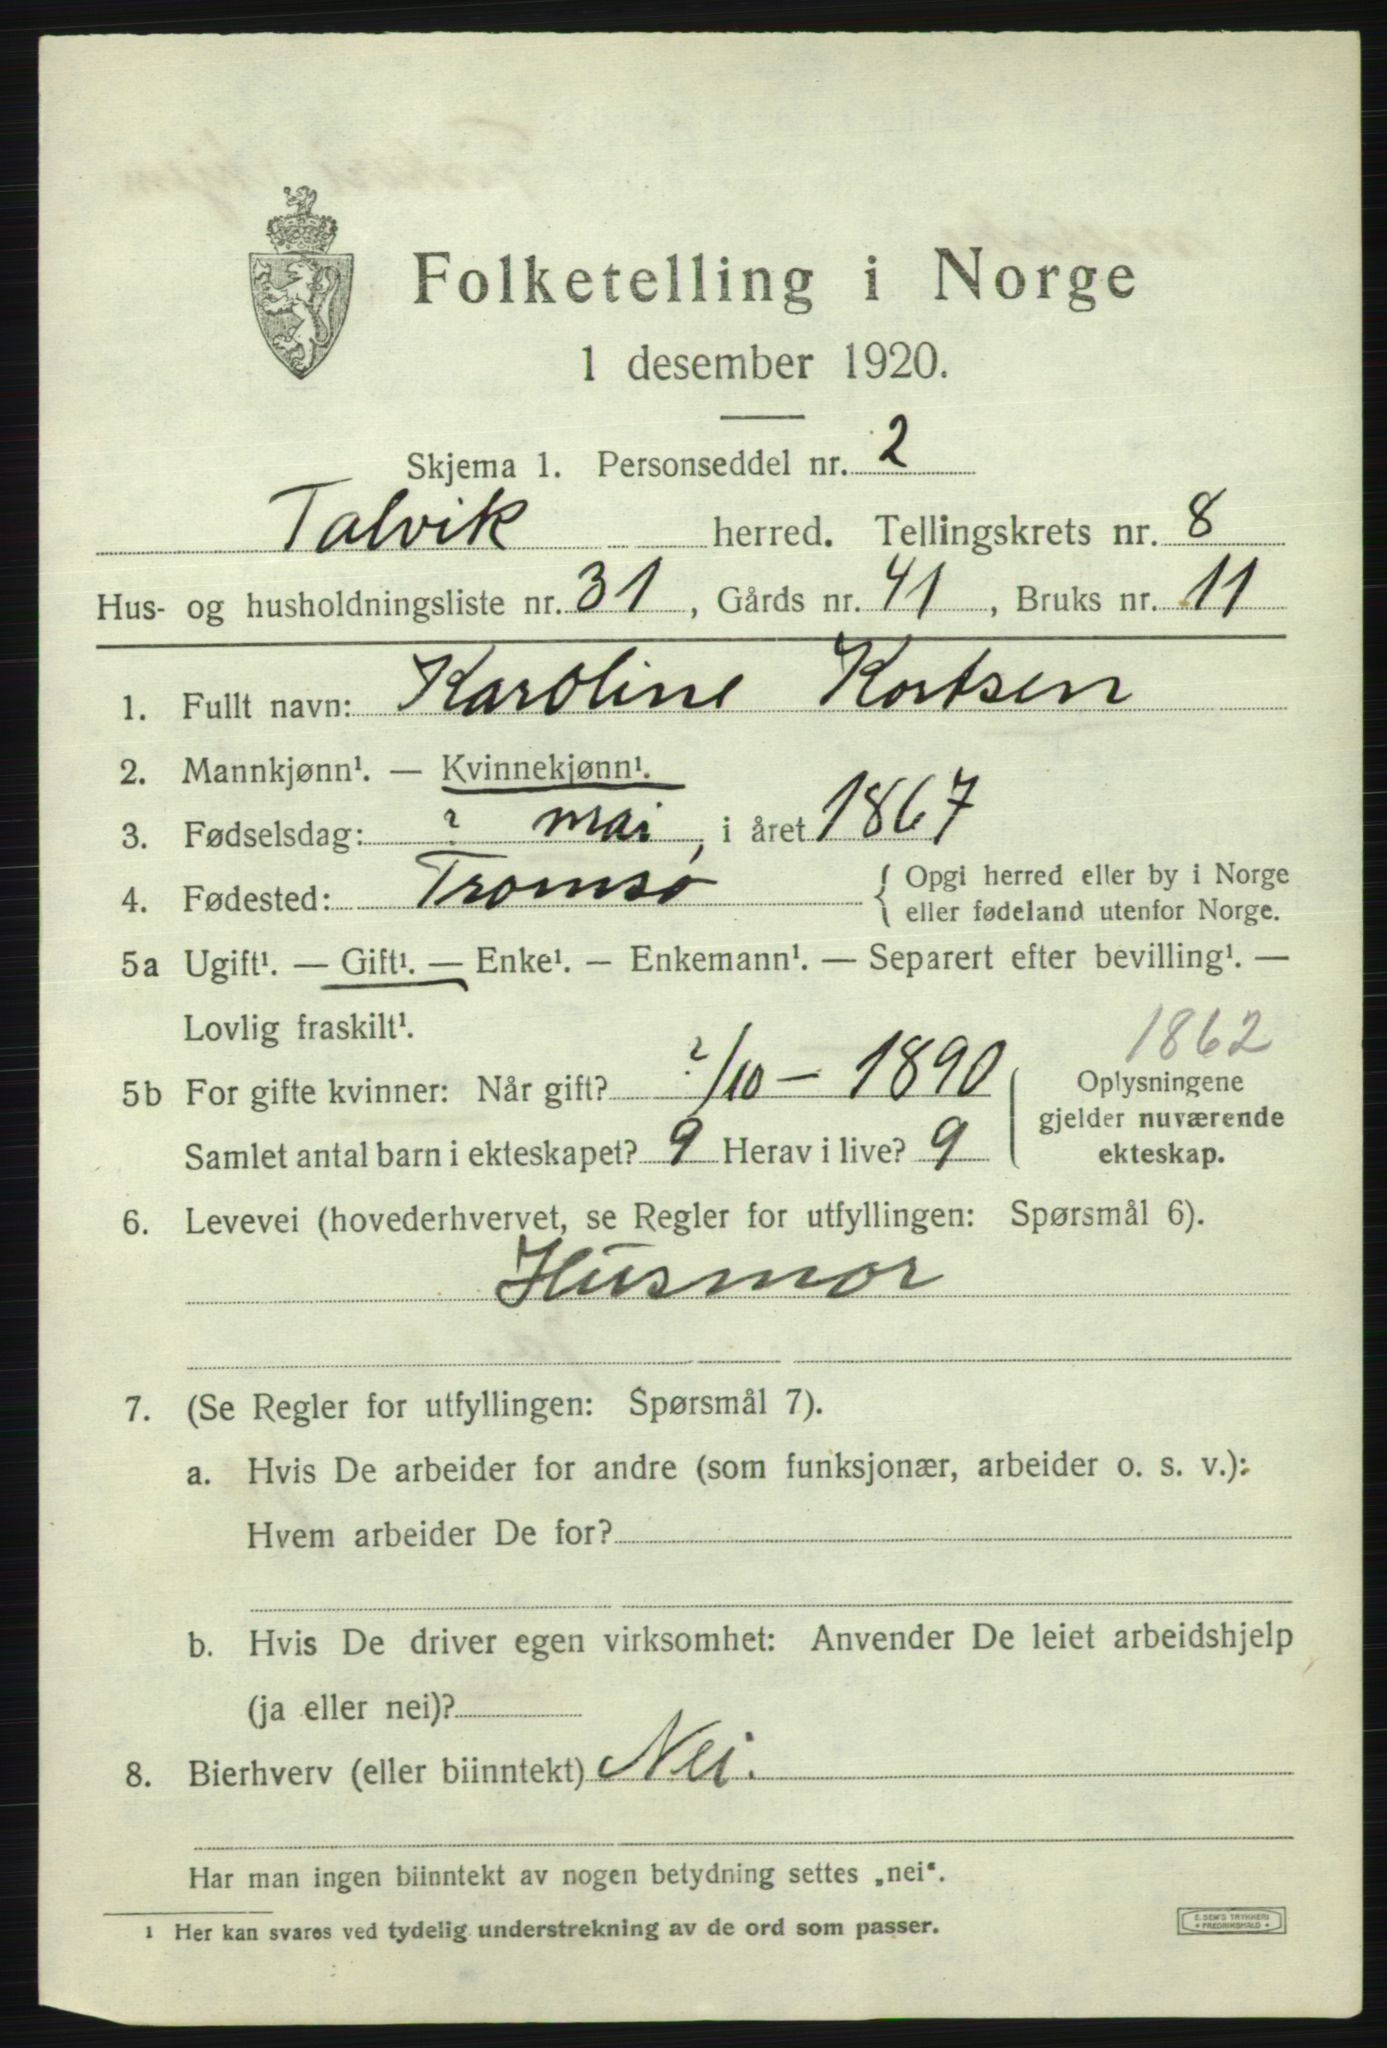 Folketelling i Norge
1 desember 1920.
Skjema 1. Personseddel nr. 2
Talvik herred. Tellingskrets nr. 8
Hus- og husholdningsliste nr. 31, Gårds nr. 41, Bruks nr. 11
1. Fullt navn: Karoline Kortsen
2. Mannkjønn¹. — Kvinnekjønn¹.
3. Fødselsdag: ? mai, i året 1867
4. Fødested: Tromsø { Opgi herred eller by i Norge
eller fødeland utenfor Norge.
5a Ugift¹. — Gift¹. — Enke¹. — Enkemann¹. — Separert efter bevilling¹. —
Lovlig fraskilt¹.
1862
5b For gifte kvinner: Når gift? ?/10 — 1890
Samlet antal barn i ekteskapet? 9 Herav i live? 9
Oplysningene
gjelder nuværende
ekteskap.
6. Levevei (hovederhvervet, se Regler for utfyllingen: Spørsmål 6).
Husmor
7. (Se Regler for utfyllingen: Spørsmål 7).
a. Hvis De arbeider for andre (som funksjonær, arbeider o. s. v.):
Hvem arbeider De for?
b. Hvis De driver egen virksomhet: Anvender De leiet arbeidshjelp
(ja eller nei)?
8. Bierhverv (eller biinntekt) Nei.
Har man ingen biinntekt av nogen betydning settes „nei“.
¹ Her kan svares ved tydelig understrekning av de ord som passer.
E. SEM'S TRYKKERI
• FREDRIKSHALD •